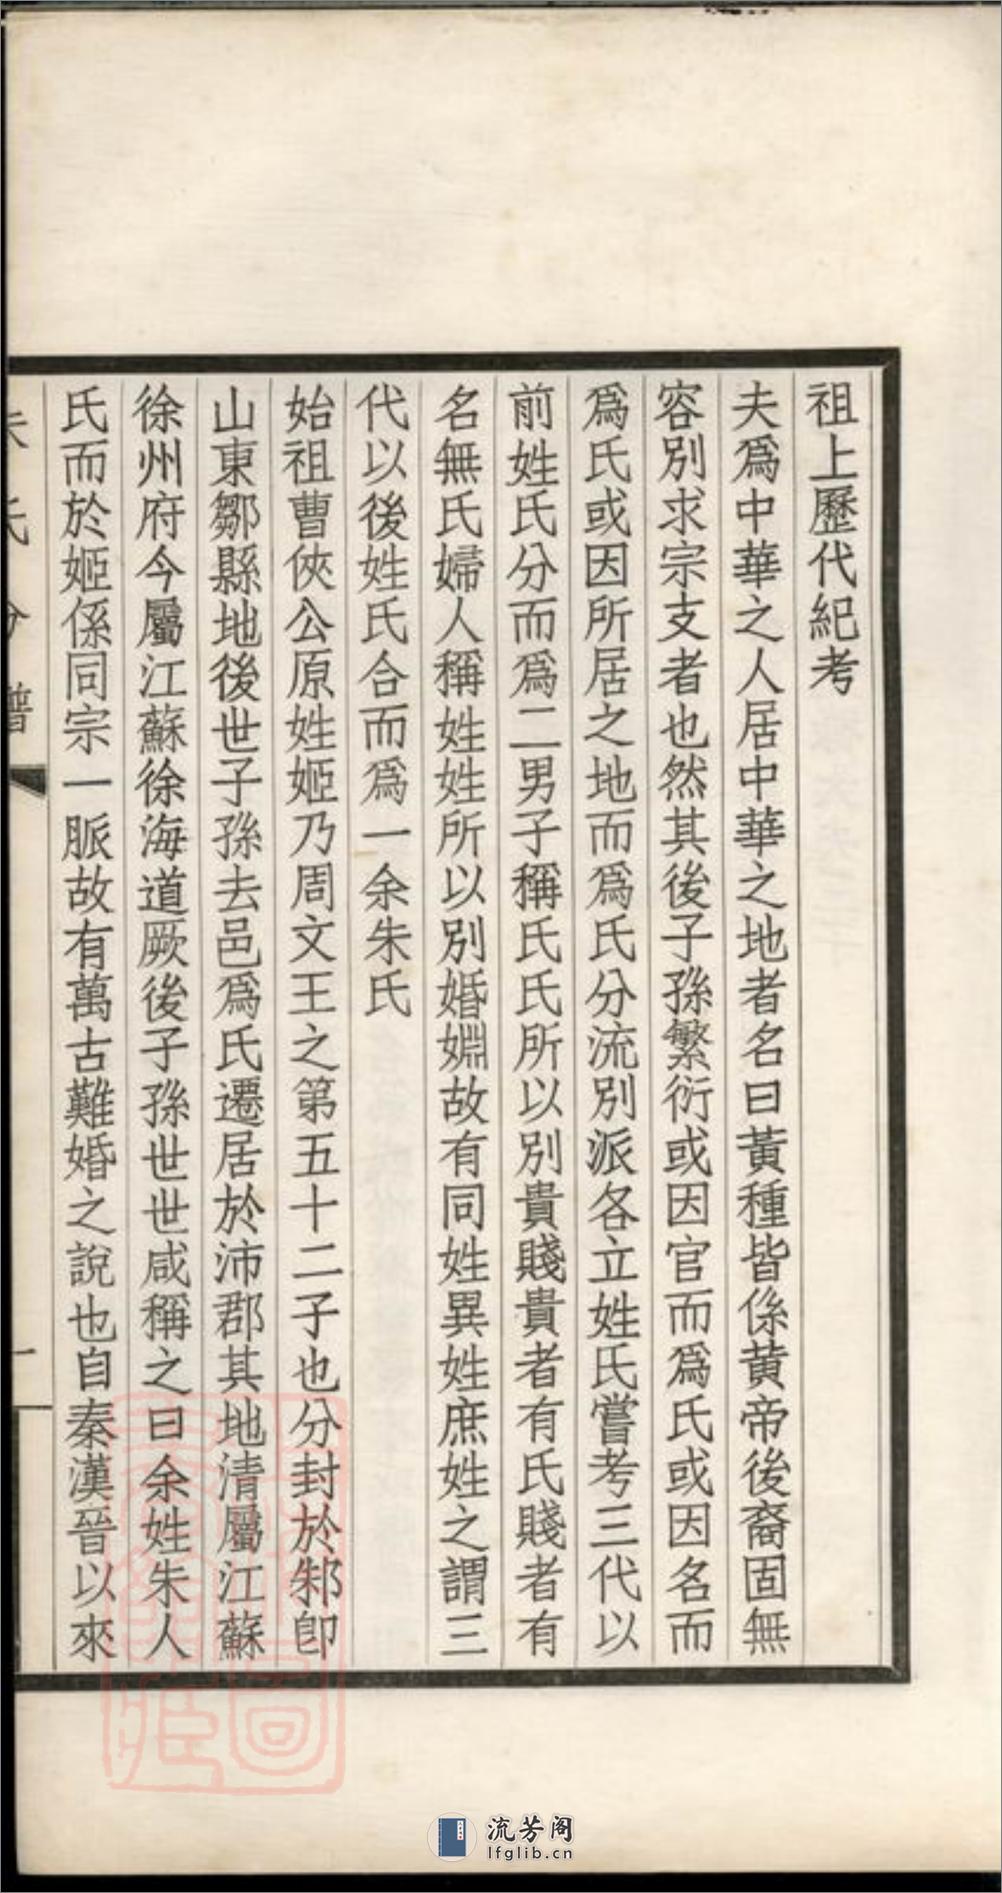 祖上歷代紀考
夫爲中華之人居中華之地者名曰黃種皆係黃帝後裔固無
容別求宗支者也然其後子孫繁衍或因官而爲氏或因名而
爲氏或因所居之地而爲氏分流別派各立姓氏嘗考三代以
前姓氏分而爲二男子稱氏氏所以別貴賤貴者有氏賤者有
名無氏婦人稱姓姓所以別婚姻故有同姓異姓庶姓之謂三
代以後姓氏合而爲一余朱氏
始祖曹俠公原姓姬乃周文王之第五十二子也分封於邾卽
山東鄒縣地後世子孫去邑爲氏遷居於沛郡其地清屬江蘇
徐州府今屬江蘇徐海道厥後子孫世世咸稱之曰余姓朱人
氏而於姬係同宗一脈故有萬古難婚之說也自秦漢晉以來
氏分譜
一
流芳阁
lfglib.cn